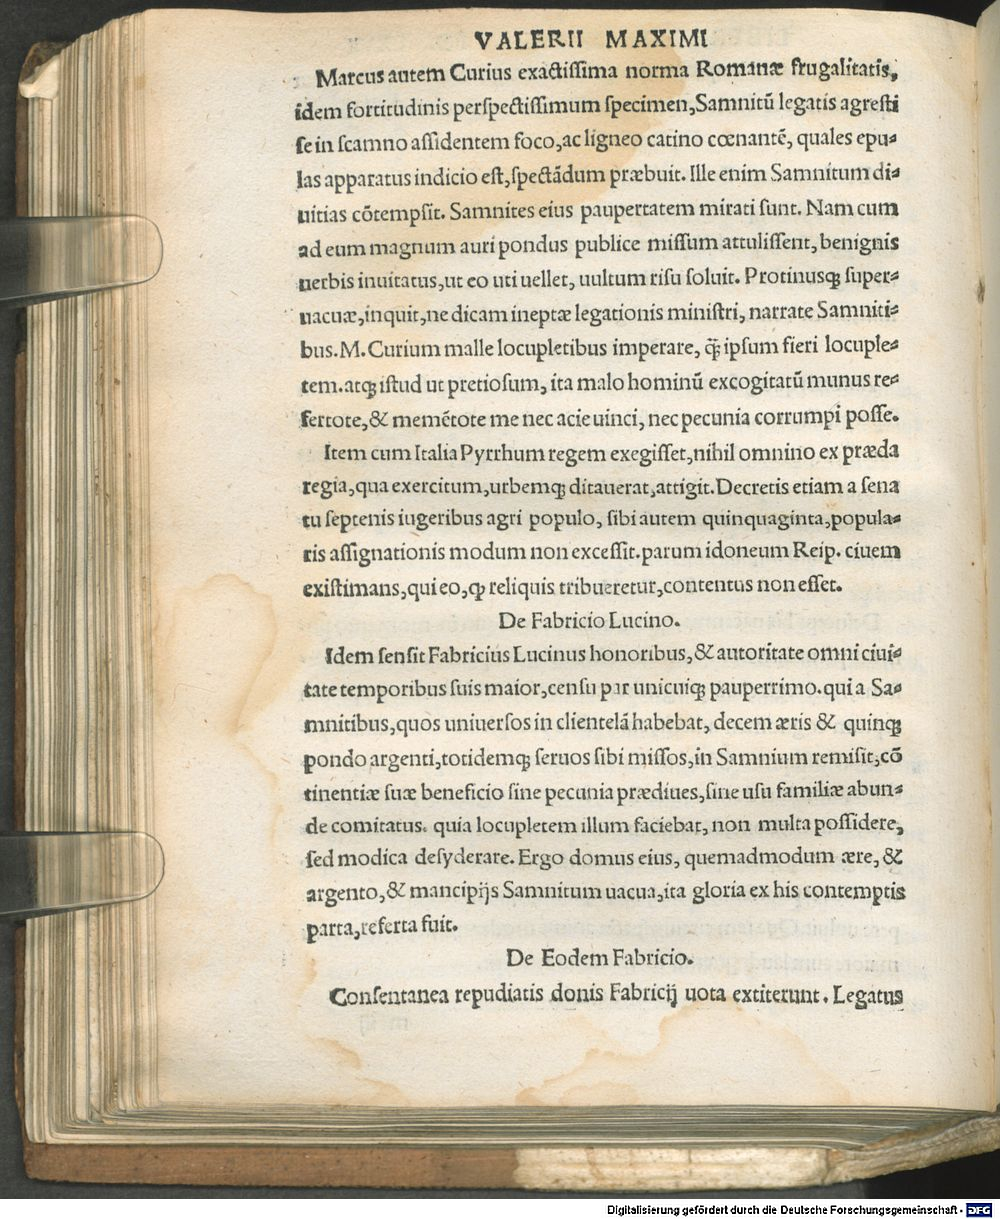 VALERII MAXIMI
Marcus autem Curius exactiſſima norma Romanæ frugalitatis,
idem fortitudinis perſpectiſſimum ſpecimen, Samnitū legatis agreſti
ſe in ſcamno aſſidentem foco, ac ligneo catino cœnantē, quales epu-
las apparatus indicio eſt, ſpectādum præbuit. Ille enim Samnitum di-
uitias cōtempſit. Samnites eius paupertatem mirati ſunt. Nam cum
ad eum magnum auri pondus publice miſſum attuliſſent, benignis
uerbis inuitatus, ut eo uti uellet, uultum riſu ſoluit. Protinusq; ſuper-
uacuæ, inquit, ne dicam ineptæ legationis miniſtri, narrate Samniti-
bus. M. Curium malle locupletibus imperare, q̃ ipſum fieri locuple-
tem. atq; iſtud ut pretioſum, ita malo hominū excogitatū munus re-
fertote, & memētote me nec acie uinci, nec pecunia corrumpi poſſe.
Item cum Italia Pyrrhum regem exegiſſet, nihil omnino ex præda
regia, qua exercitum, urbemq; ditauerat, attigit. Decretis etiam a ſena
tu ſeptenis iugeribus agri populo, ſibi autem quinquaginta, popula-
ris aſſignationis modum non exceſſit. parum idoneum Reip. ciuem
exiſtimans, qui eo, ꝙ reliquis tribueretur, contentus non eſſet.
De Fabricio Lucino.
Idem ſenſit Fabricius Lucinus honoribus, & autoritate omni ciui-
tate temporibus ſuis maior, cenſu par unicuiq; pauperrimo. qui a Sa-
mnitibus, quos uniuerſos in clientelā habebat, decem æris & quinq;
pondo argenti, totidemq; ſeruos ſibi miſſos, in Samnium remiſit, cō
tinentiæ ſuæ beneficio ſine pecunia prædiues, ſine uſu familiæ abun-
de comitatus. quia locupletem illum faciebat, non multa poſſidere,
ſed modica deſyderare. Ergo domus eius, quemadmodum ære, &
argento, & mancipijs Samnitum uacua, ita gloria ex his contemptis
parta, referta fuit.
De Eodem Fabricio.
Conſentanea repudiatis donis Fabricij uota extiterunt. Legatus
Digitalisierung gefördert durch die Deutsche Forschungsgemeinschaft - DFG